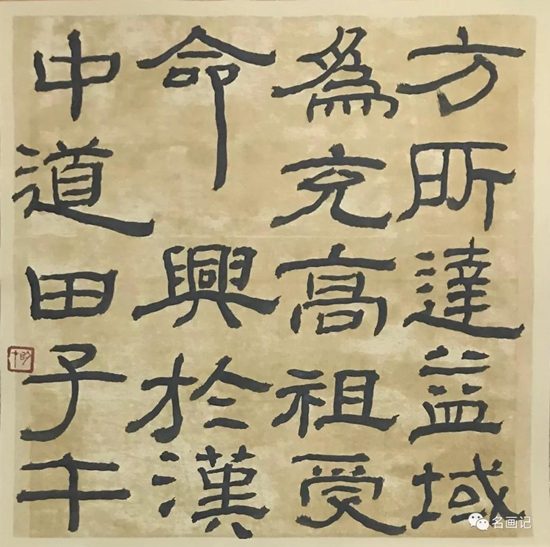 方所達益域
為充高祖受
命興於漢
中道田子午
名画记